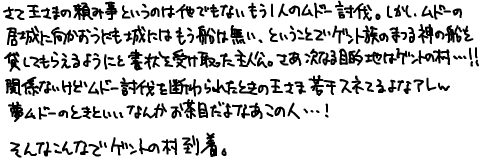 さて王さまの頼み事というのは他でもないもう1人のムドー討伐。しかし、ムドーの
居城に向かおうにも城にはもう船は無い、ということでゲント族のまつる神の船を
貸してもらえるようにと書状を受け取った主人公。さあ次なる目的地はゲントの村…!!
関係ないけどムドー討伐を断わられたときの王さま若干スネてるよなアレ〜
夢ムドーのときといいなんかお茶目だよなあこの人…!
そんなこんなでゲントの村到着。